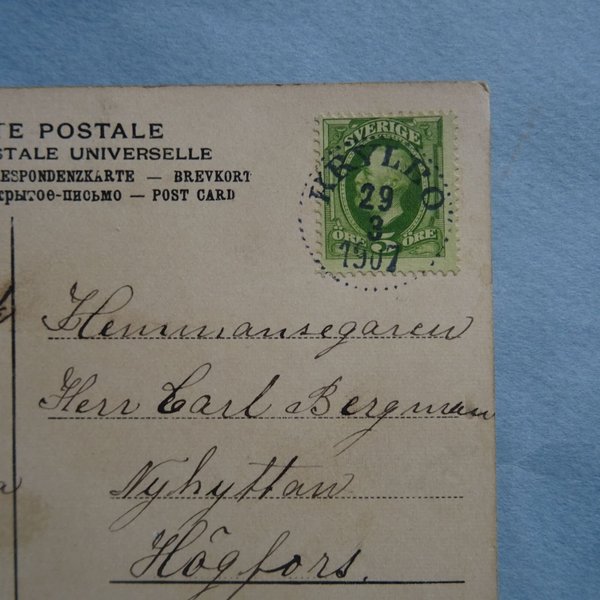 TE POSTALE
STALE UNIVERSELLE
RESPONDENZKARTE — BREVKORT
крытое-письмо — POST CARD
SVERIGE
KRYLBO
29
3
1907
ÖRE 5 ÖRE
Hemmansegaren
Herr Carl Bergman
Nyhyttan
Högfors.